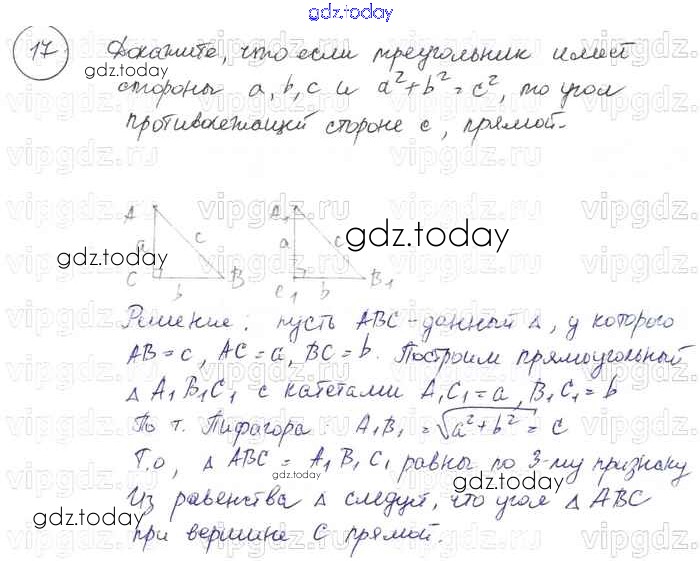 gdz.today
17. Докажите, что если треугольник имеет
gdz.today
стороны a, b, c и a²+b²=c², то угол
противолежащий стороне c, прямой.
vipgdz.ru
A
a
c
C
b
B
A₁
a
c
C₁
b
B₁
gdz.today
gdz.today
Решение: пусть ABC - данный Δ, у которого
AB=c, AC=a, BC=b. Построим прямоугольный
Δ A₁B₁C₁ с катетами A₁C₁=a, B₁C₁=b
По т. Пифагора: A₁B₁ = √a²+b² = c
Т.о, Δ ABC = A₁B₁C₁ равны по 3-му признаку
Из равенства Δ следует, что угол Δ ABC
gdz.today
gdz.today
при вершине C прямой.